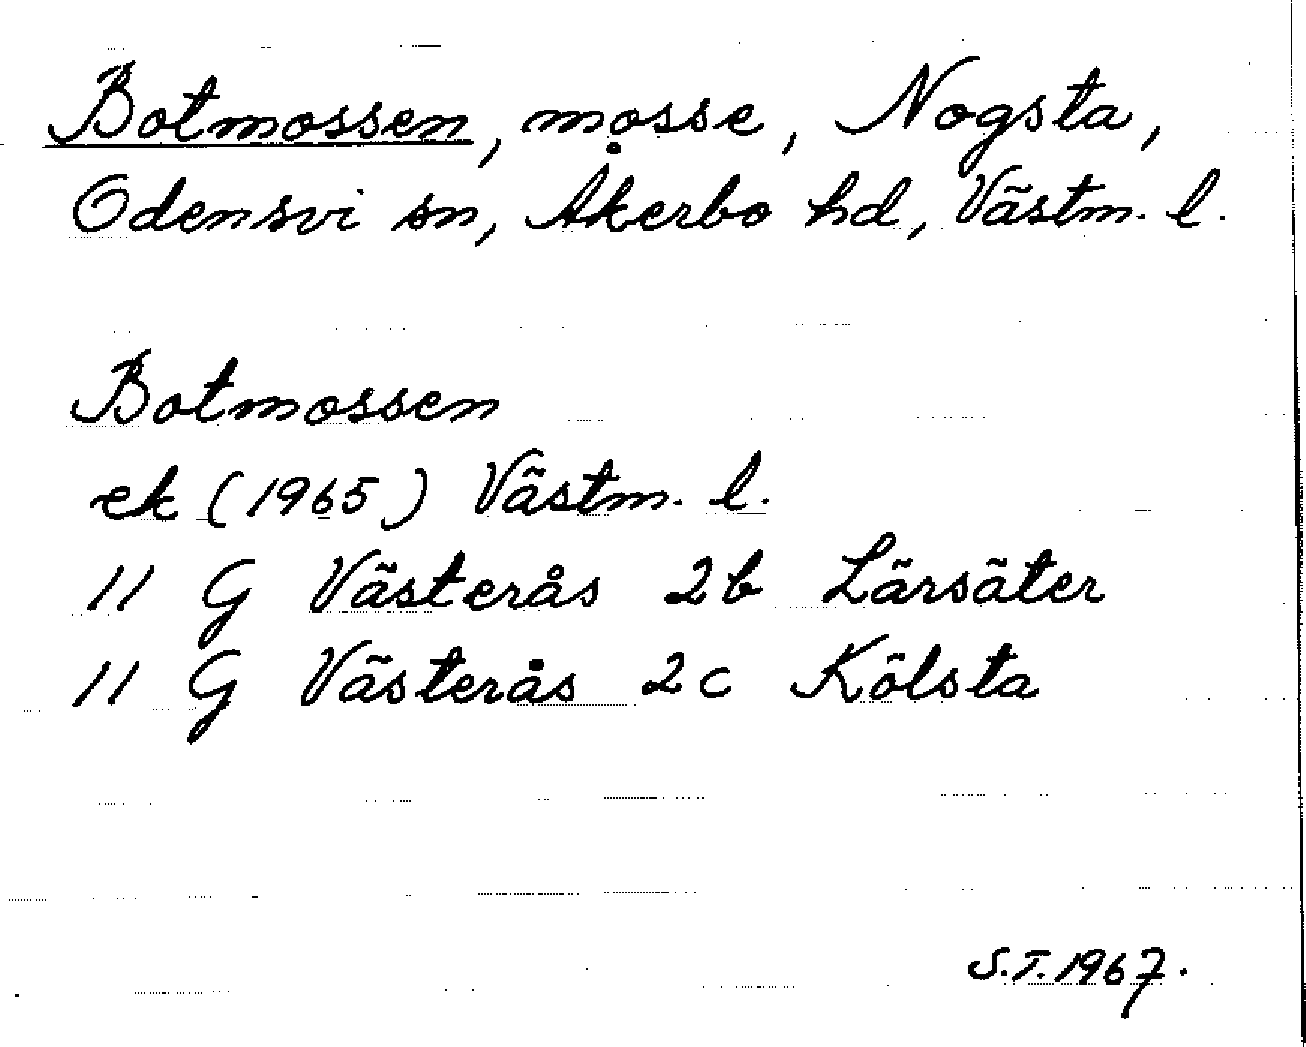 Botmossen, mosse, Nogsta,
Odensvi sn, Åkerbo hd, Västm. l.
Botmossen
ek (1965) Västm. l.
11 G Västerås 2b Lärsäter
11 G Västerås 2c Kölsta
S.T. 1967.